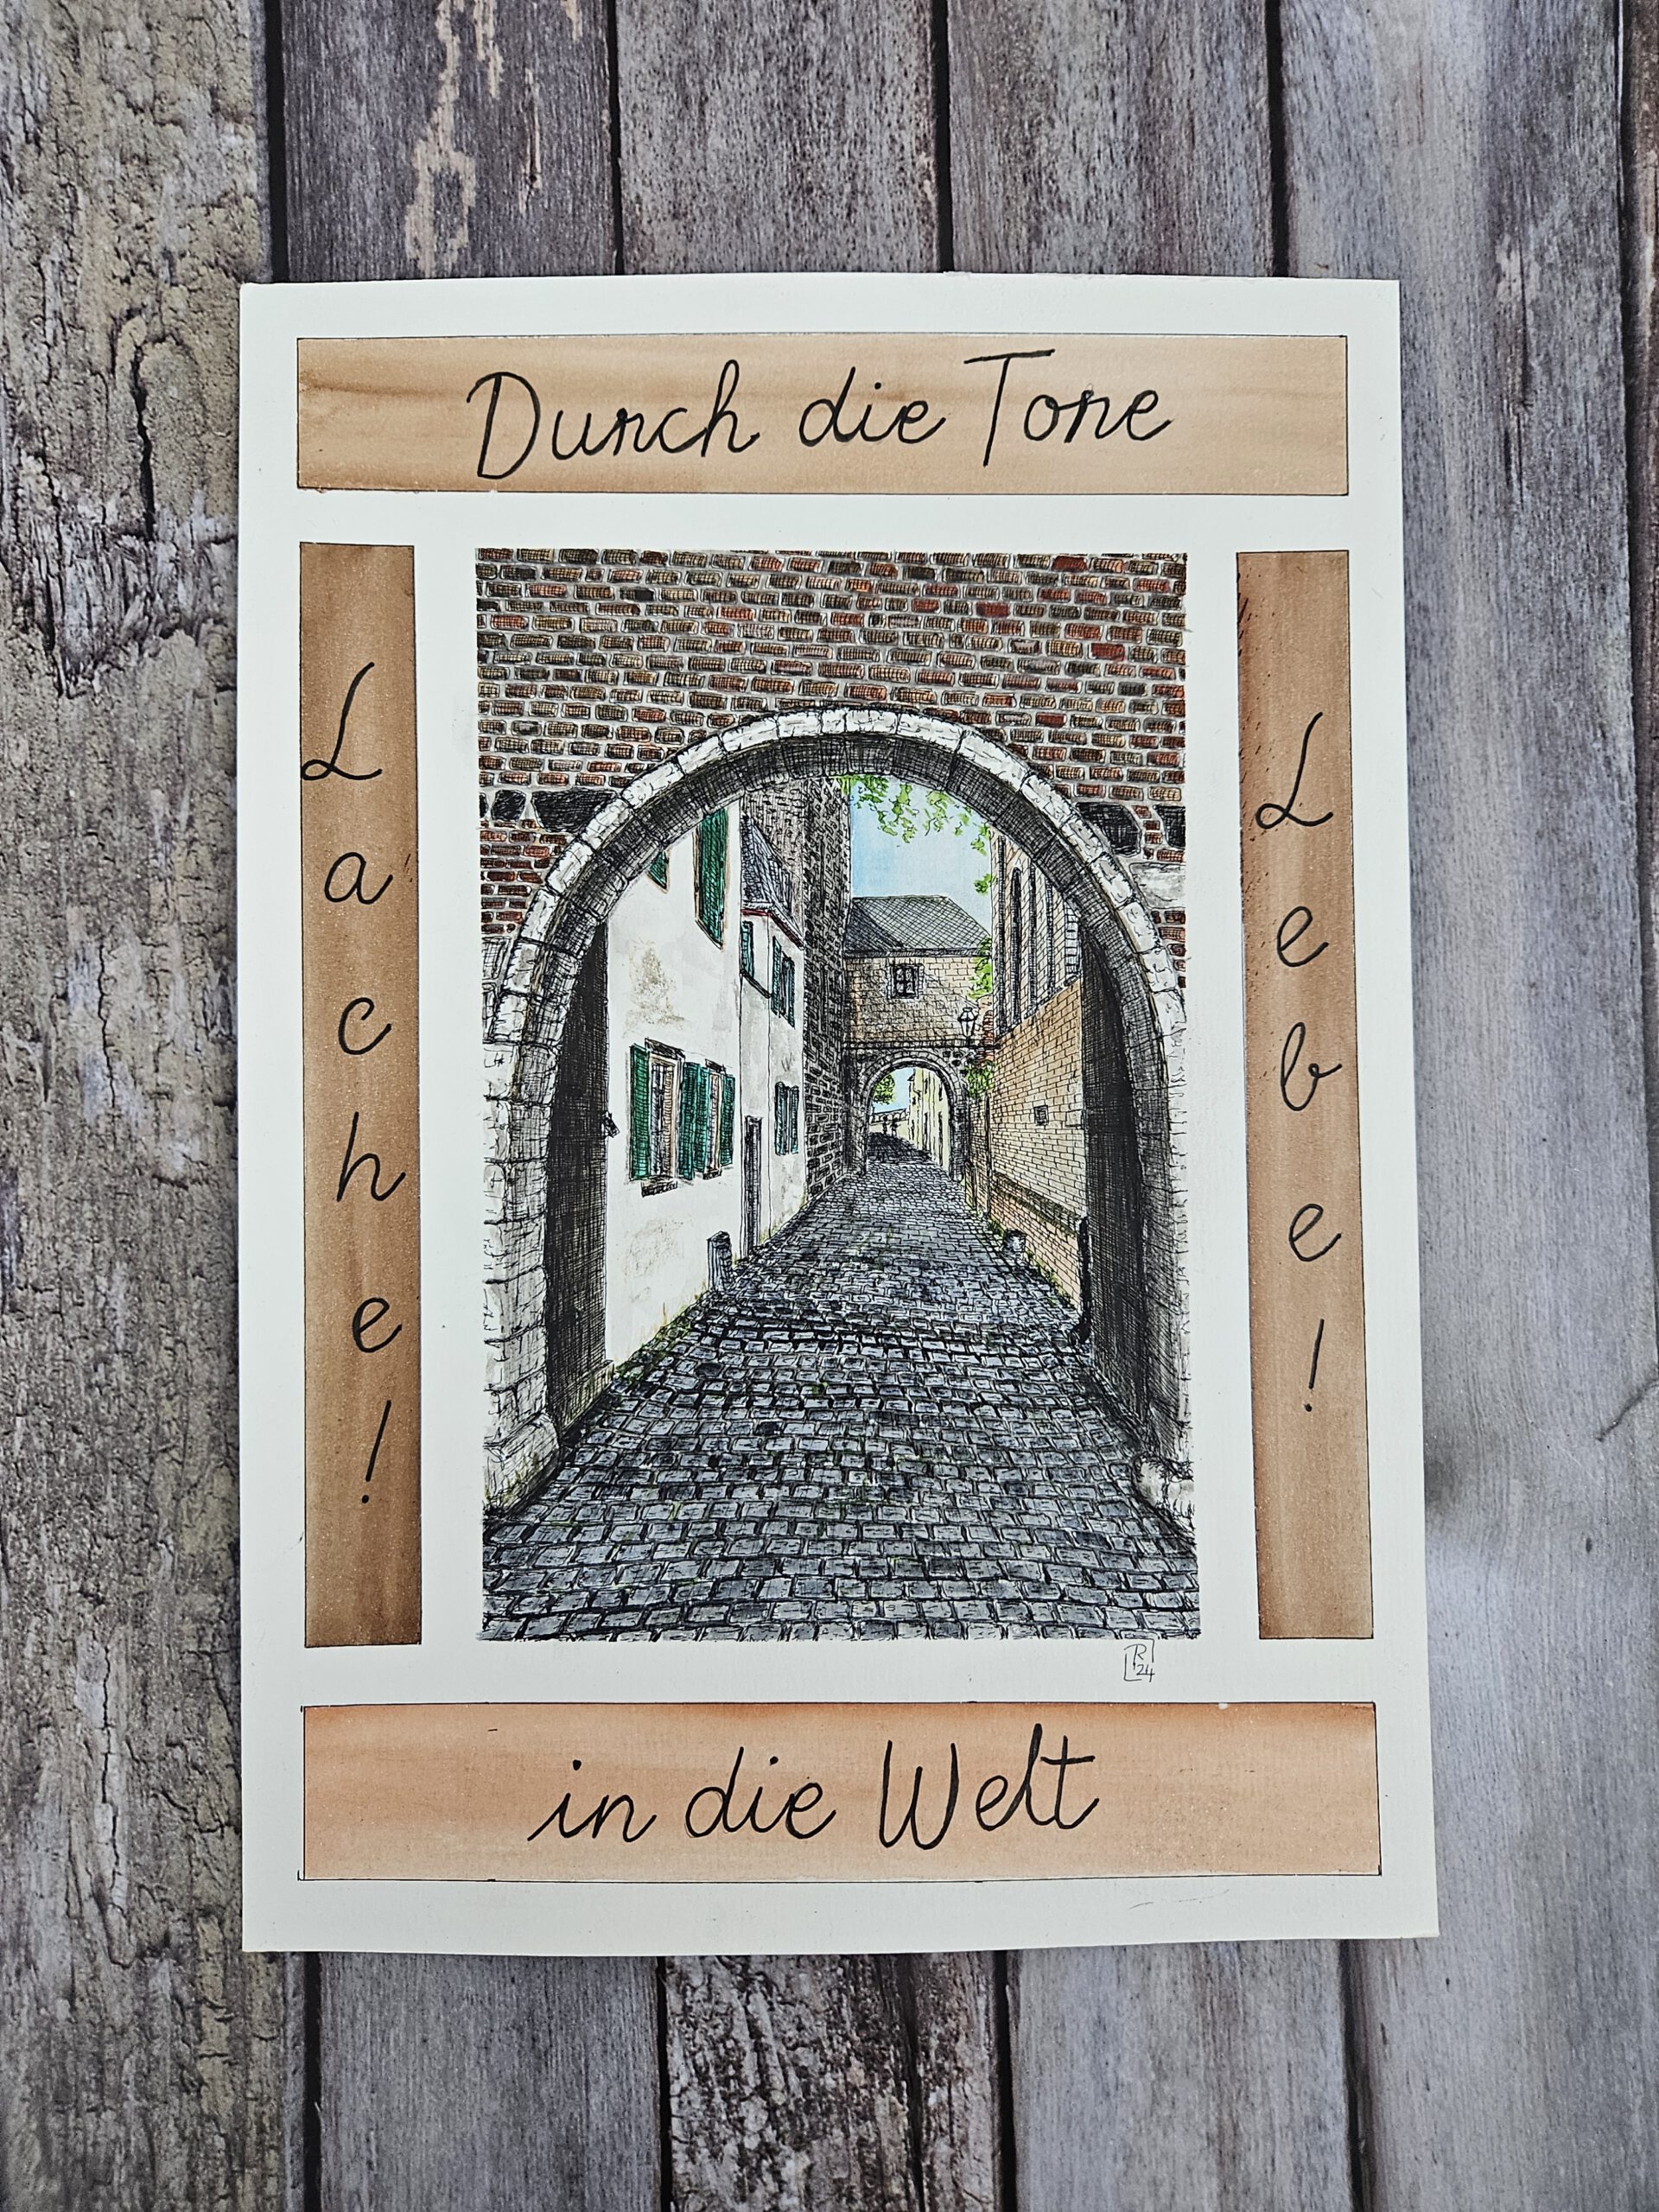 Durch die Tore
Lache!
Lebe!
R
'24
in die Welt